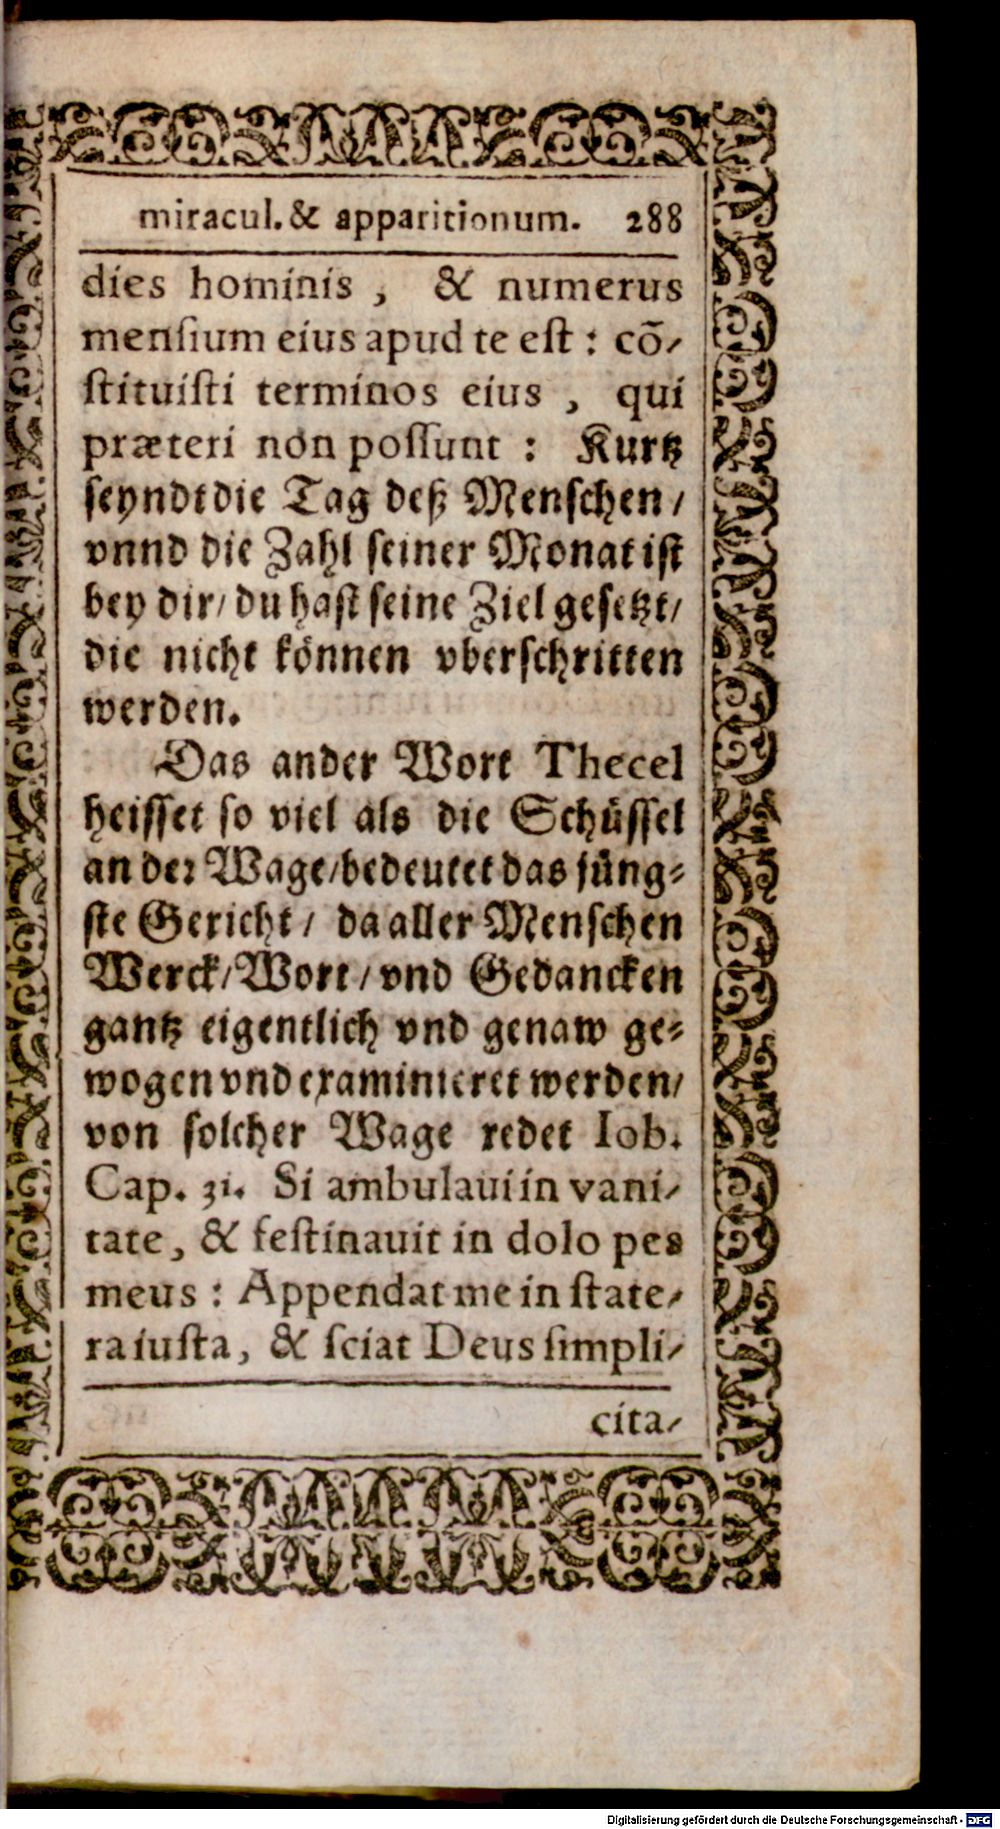 miracul. & apparitionum. 288
dies hominis , & numerus
menſium eius apud te eſt : cõ-
ſtituiſti terminos eius , qui
præteri non poſſunt : Kurtz
ſeyndt die Tag deß Menſchen /
vnnd die Zahl ſeiner Monat iſt
bey dir / du haſt ſeine Ziel geſetzt /
die nicht können vberſchritten
werden.
Das ander Wort Thecel
heiſſet ſo viel als die Schüſſel
an der Wage / bedeutet das jüng-
ſte Gericht / da aller Menſchen
Werck / Wort / vnd Gedancken
gantz eigentlich vnd genaw ge-
wogen vnd examinieret werden /
von ſolcher Wage redet Iob.
Cap. 31. Si ambulaui in vani-
tate, & feſtinauit in dolo pes
meus : Appendat me in ſtate-
ra iuſta, & ſciat Deus ſimpli-
cita-
Digitalisierung gefördert durch die Deutsche Forschungsgemeinschaft - DFG